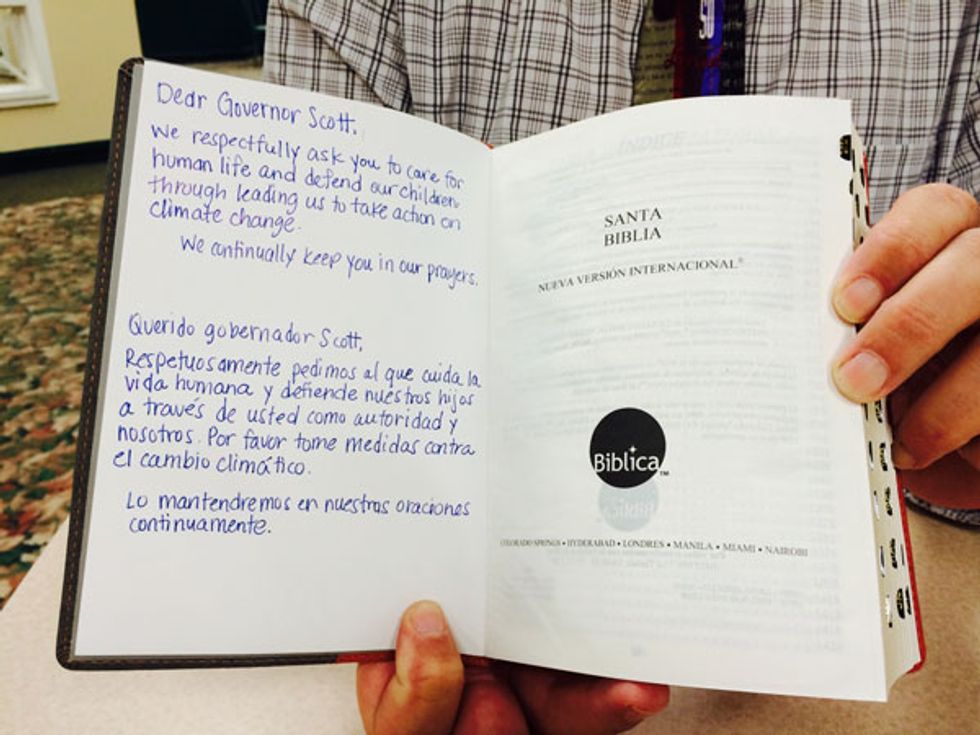 Dear Governor Scott,
We respectfully ask you to care for
human life and defend our children
through leading us to take action on
climate change.
We continually keep you in our prayers.
Querido gobernador Scott,
Respetuosamente pedimos al que cuida la
vida humana y defiende nuestros hijos
a través de usted como autoridad y
nosotros. Por favor tome medidas contra
el cambio climático.
Lo mantendremos en nuestras oraciones
continuamente.
SANTA
BIBLIA
NUEVA VERSIÓN INTERNACIONAL®
Biblica™
COLORADO SPRINGS • HYDERABAD • LONDRES • MANILA • MIAMI • NAIROBI